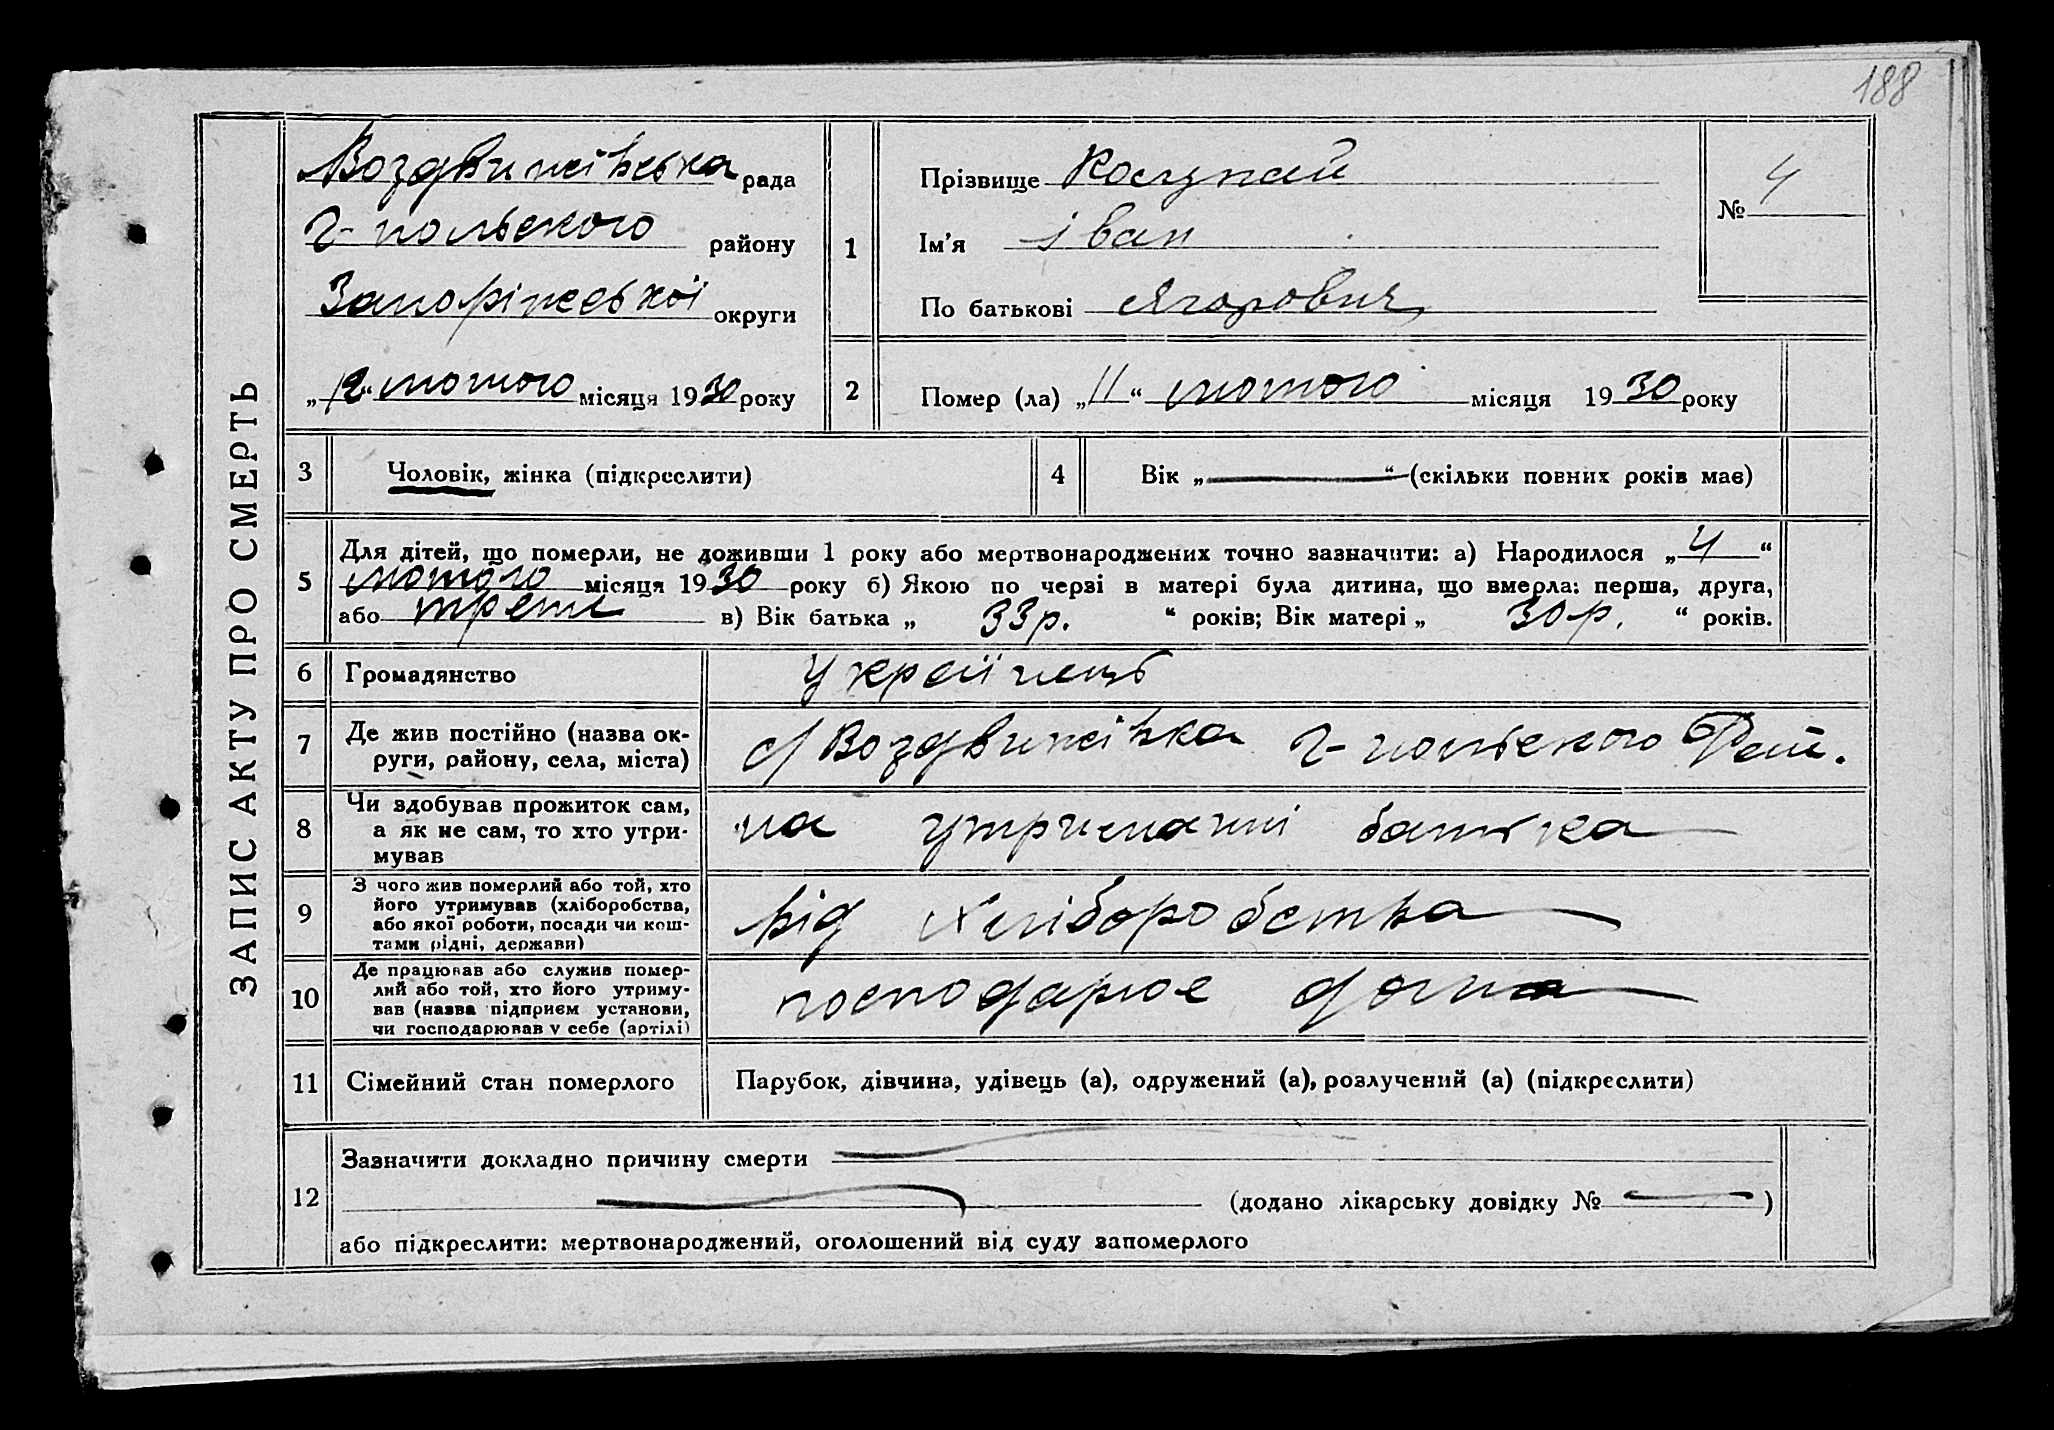 188
ЗАПИС АКТУ ПРО СМЕРТЬ
Воздвижівська рада
Г-польського району
Запоріжської округи
„12“ лютого місяця 1930 року
1
Прізвище
Ім’я Іван
По батькові Ягорович
№ 4
2
Помер (ла) „11“ лютого місяця 1930 року
3
Чоловік, жінка (підкреслити)
4
Вік „ “ (скільки повних років має)
5
Для дітей, що померли, не доживши 1 року або мертвонароджених точно зазначити: а) Народилося „4“
лютого місяця 1930 року б) Якою по черзі в матері була дитина, що вмерла: перша, друга,
або третє в) Вік батька „ 33р. “ років; Вік матері „ 30р. “ років.
6
Громадянство
Українець
7
Де жив постійно (назва ок-
руги, району, села, міста)
с/Воздвижівка Г-польського Рай.
8
Чи здобував прожиток сам,
а як не сам, то хто утри-
мував
на утриманні батька
9
З чого жив померлий або той, хто
його утримував (хліборобства,
або якої роботи, посади чи кош-
тами рідні, держави)
від хліборобства
10
Де працював або служив помер-
лий або той, хто його утриму-
вав (назва підприєм установи,
чи господарював у себе (артілі)
господарює дома
11
Сімейний стан померлого
Парубок, дівчина, удівець (а), одружений (а), розлучений (а) (підкреслити)
12
Зазначити докладно причину смерти
(додано лікарську довідку № )
або підкреслити: мертвонароджений, оголошений від суду запомерлого